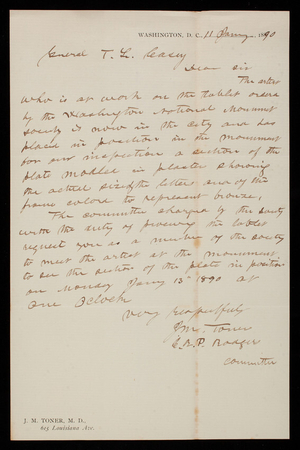 WASHINGTON, D. C., 11 January 1890
General T. L. Casey
Dear sir
The artist
who is at work on the tablet ordered
by the Washington National Monument
Society is now in the city and has
placed in position in the monument
for our inspection a section of the
plate modeled in plaster showing
the actual size of the letters and of the
frame colored to represent bronze,
The committee charged by the society
with the duty of procuring the tablet
request you as a member of the society
to meet the artist at the monument
to see the section of the plate in position
on Monday Jany 13th 1890 at
One O'clock
Very respectfully
J. M. Toner
Committee
J. M. TONER, M. D.,
615 Louisiana Ave.